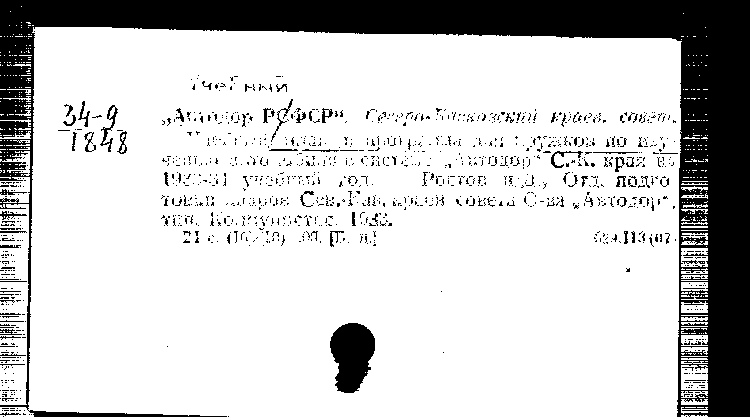 Учебный
34-9
1848
„Автодор РСФСР“. Северо-Кавказский краев. совет.
Учебный план и программы для кружков по изу-
чению автомобиля в системе „Автодор“ С.-К. края на
учебный год. Ростов н.Д., Отд. подго-
товки кадров Сев.-Кав. краев совета О-ва „Автодор“,
тип. Коммунистич.
21 с. [Б. ц.]